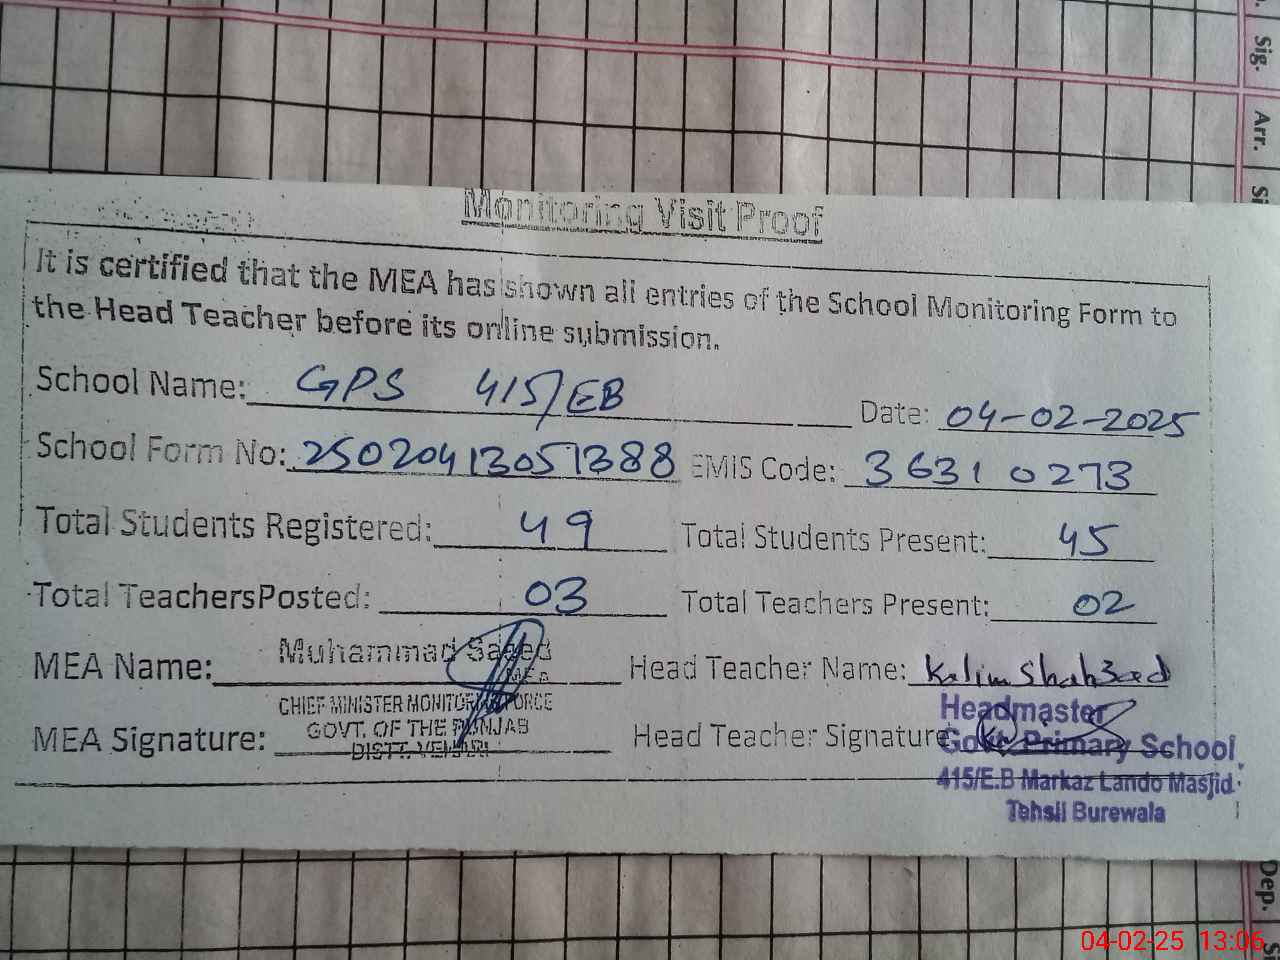 Sig.
Arr.
Monitoring Visit Proof
It is certified that the MEA has shown all entries of the School Monitoring Form to
the Head Teacher before its online submission.
School Name: GPS 415/EB Date: 04-02-2025
School Form No: 25020413051388 EMIS Code: 36310273
Total Students Registered: 49 Total Students Present: 45
Total TeachersPosted: 03 Total Teachers Present: 02
MEA Name: Muhammad Saeed Head Teacher Name: Kalim Shahzad
MEA
CHIEF MINISTER MONITORING FORCE
GOVT. OF THE PUNJAB
DISTT. VEHARI
MEA Signature: Head Teacher Signature
Headmaster
Govt. Primary School
415/E.B Markaz Lando Masjid
Tehsil Burewala
Dep.
04-02-25 13:06